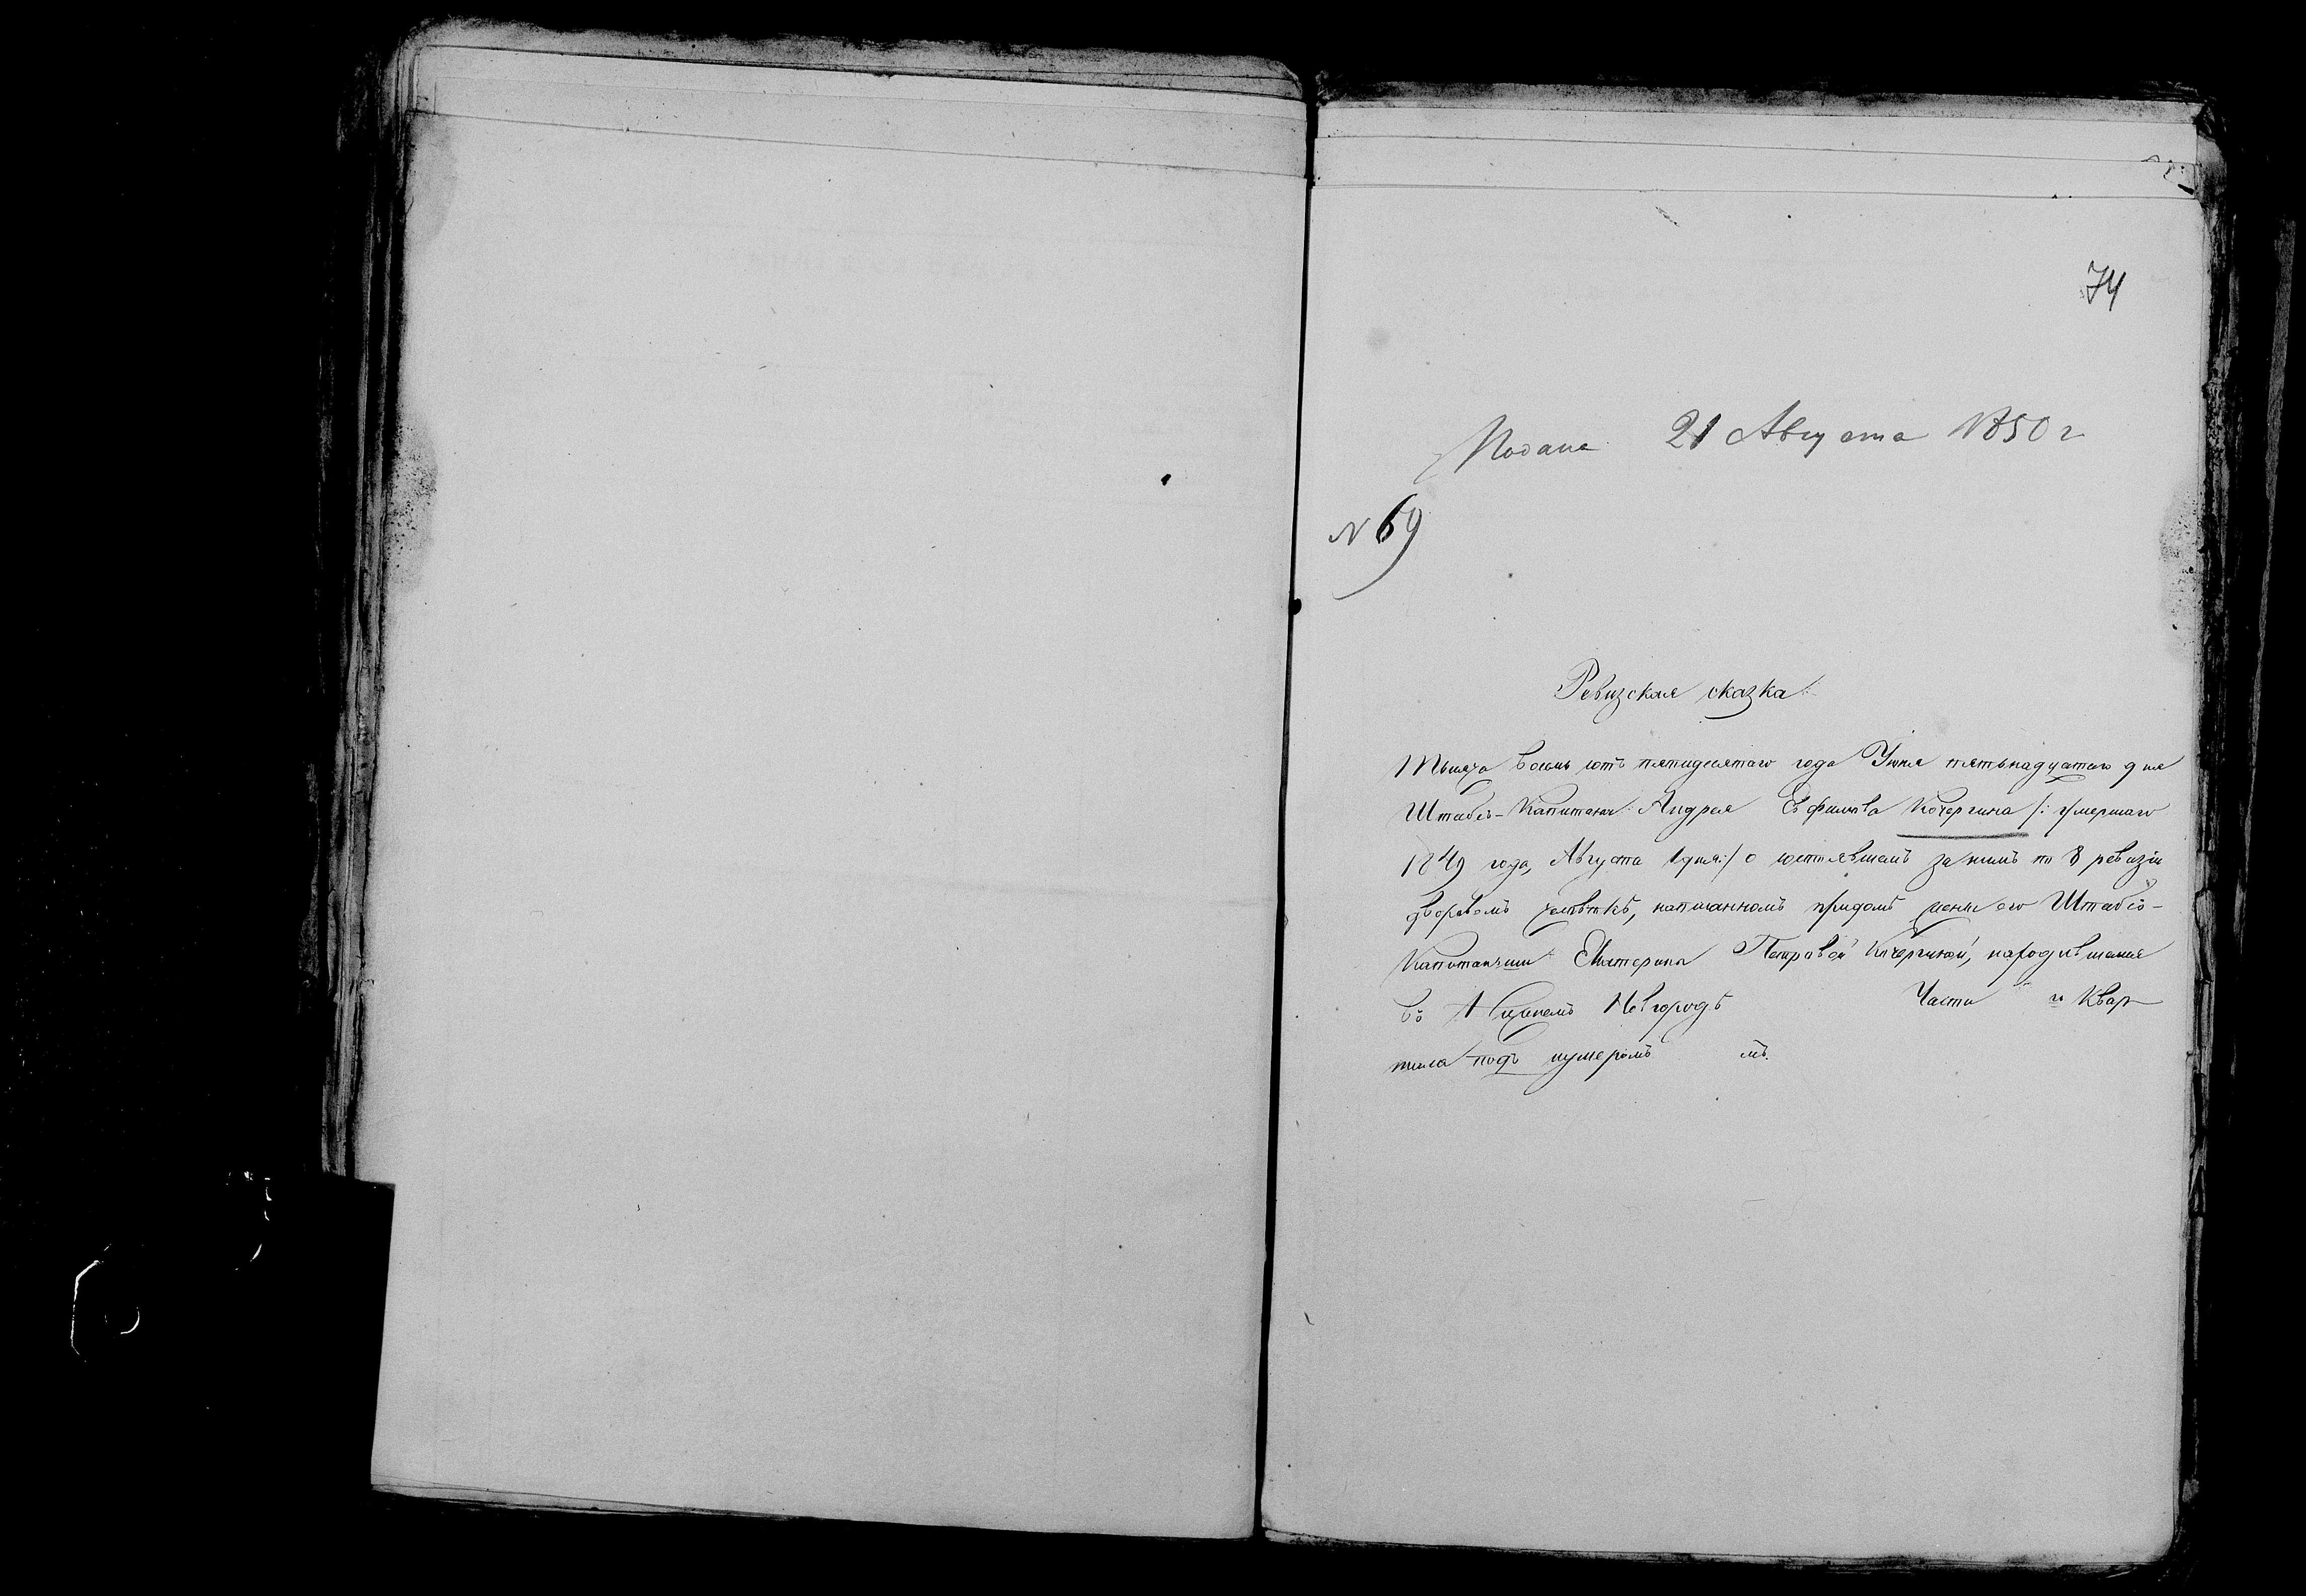 74
Подана 21 Августа 1850 г
№ 69
Ревизская сказка
Тысяча восемь сотъ пятидесятаго года Іюня пятьнадцатаго дня
Штабсъ-Капитана Андрея Ефимова Кочергина /: умершаго
1849 года, Августа 1 дня :/ о состоявшемъ за нимъ по 8 ревизіи
дворовомъ человѣкѣ, написанномъ при домѣ жены его Штабсъ-
Капитанши Екатерины Петровой Кочергиной, находившемся
въ Нижнемъ Новгородѣ Части го Квар
тала подъ нумеромъ мъ.